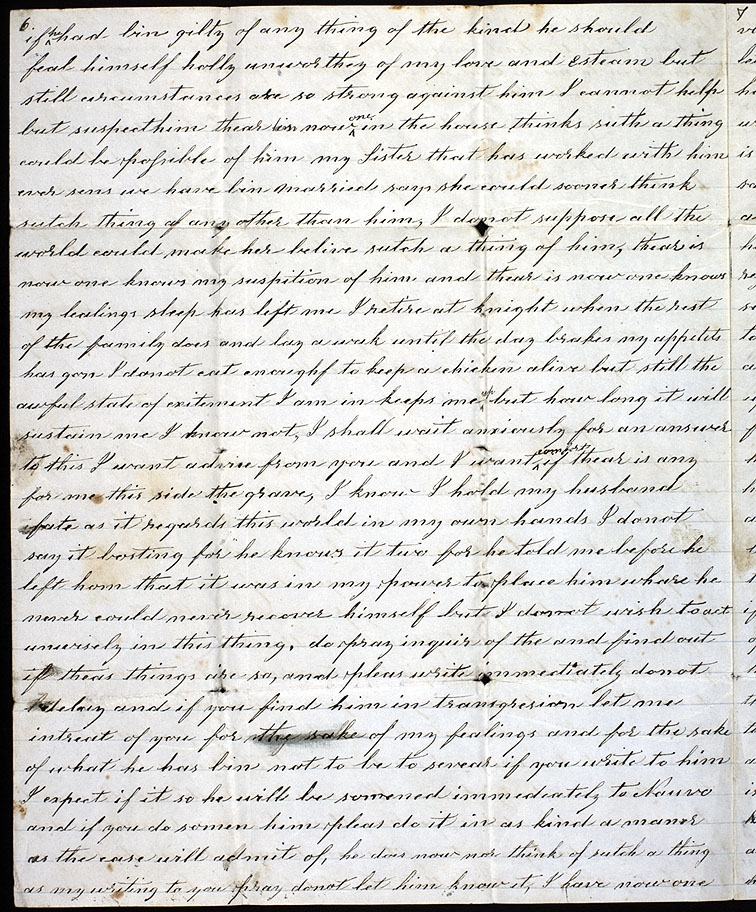 6.
if he had bin gilty of any thing of the kind he should
feal himself holly unworthey of my love and esteam but
still circumstances are so strong against him I cannot help
but suspect him thear is now one in the house thinks sutch a thing
could be possible of him my Sister that has worked with him
ever sens we have bin married says she could sooner think
sutch thing of any other than him, I donot suppose all the
world could make her belive sutch a thing of him, thear is
now one knows my suspition of him and thear is now one knows
my fealings sleep has left me I retire at knight when the rest
of the family does and lay a wak until the day brakes my appetite
has gon I donot eat enoughf to keep a chicken alive but still the
awful state of exitement I am in keeps me up but how long it will
sustain me I know not, I shall wait anxiously for an answer
to this I want advise from you and I want comfort if thear is any
for me this side the grave, I know I hold my husband
fate as it regards this world in my own hands I donot
say it bosting for he knows it two for he told me before he
left hom that it was in my power to place him whare he
never could never recover himself but I donot wish to act
unwisely in this thing, do pray inquir of the and find out
if theas things are so, and pleas write immediately donot
delay and if you find him in transgresion let me
intreat of you for the sake of my fealings and for the sake
of what he has bin not to be to sevear if you write to him
I expect if it so he will be somened immediately to Nauvo
and if you do somen him pleas do it in as kind a maner
as the case will admit of, he does now nor think of sutch a thing
as my writing to you pray donot let him know it, I have now one